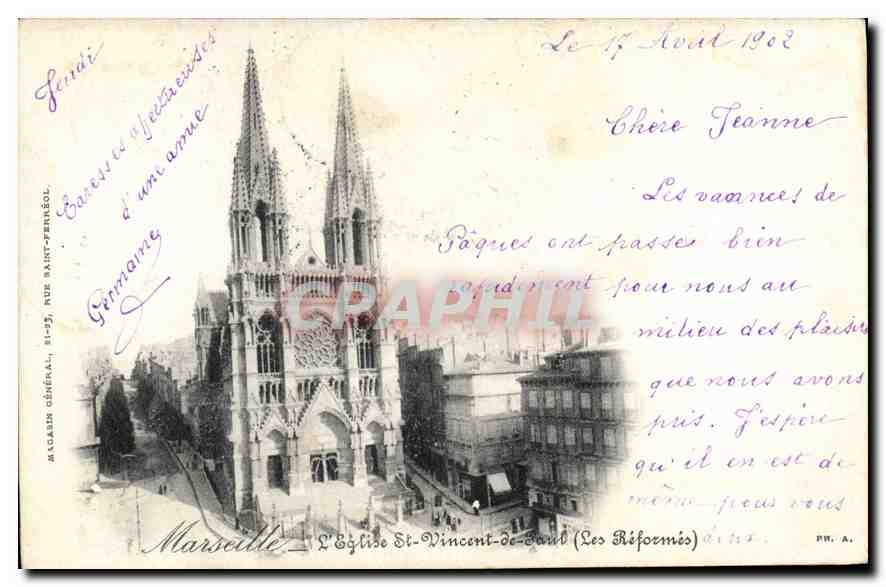 Le 17 Avril 1902
Jeudi
Caresses affectueuses
d'une amie
Germaine
Chère Jeanne
Les vacances de
Pâques ont passé bien
rapidement pour nous au
milieu des plaisirs
que nous avons
pris. J'espère
qu'il en est de
même pour vous
MAGASIN GÉNÉRAL, 21-23, RUE SAINT-FERRÉOL
CPAPHIL
Marseille – L'Église St-Vincent-de-Paul (Les Réformés)
PH. A.